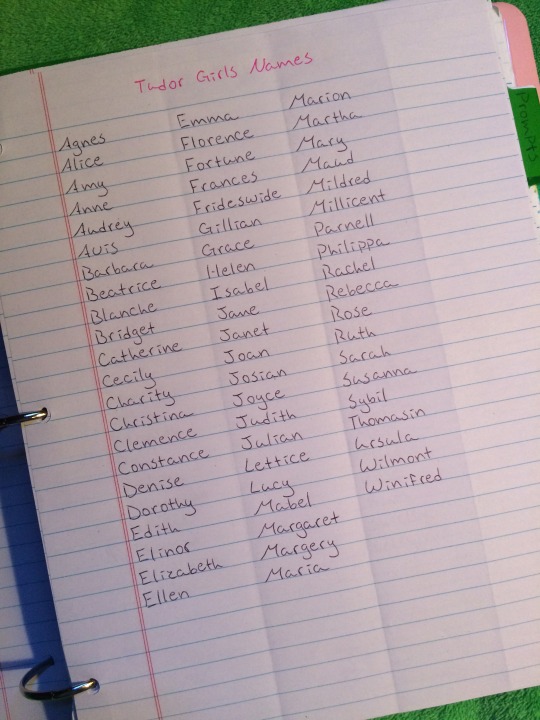 Tudor Girls Names
Agnes
Alice
Amy
Anne
Audrey
Avis
Barbara
Beatrice
Blanche
Bridget
Catherine
Cecily
Charity
Christina
Clemence
Constance
Denise
Dorothy
Edith
Elinor
Elizabeth
Ellen
Emma
Florence
Fortune
Frances
Frideswide
Gillian
Grace
Helen
Isabel
Jane
Janet
Joan
Josian
Joyce
Judith
Julian
Lettice
Lucy
Mabel
Margaret
Margery
Maria
Marion
Martha
Mary
Maud
Mildred
Millicent
Parnell
Philippa
Rachel
Rebecca
Rose
Ruth
Sarah
Susanna
Sybil
Thomasin
Ursula
Wilmont
Winifred
Prompts